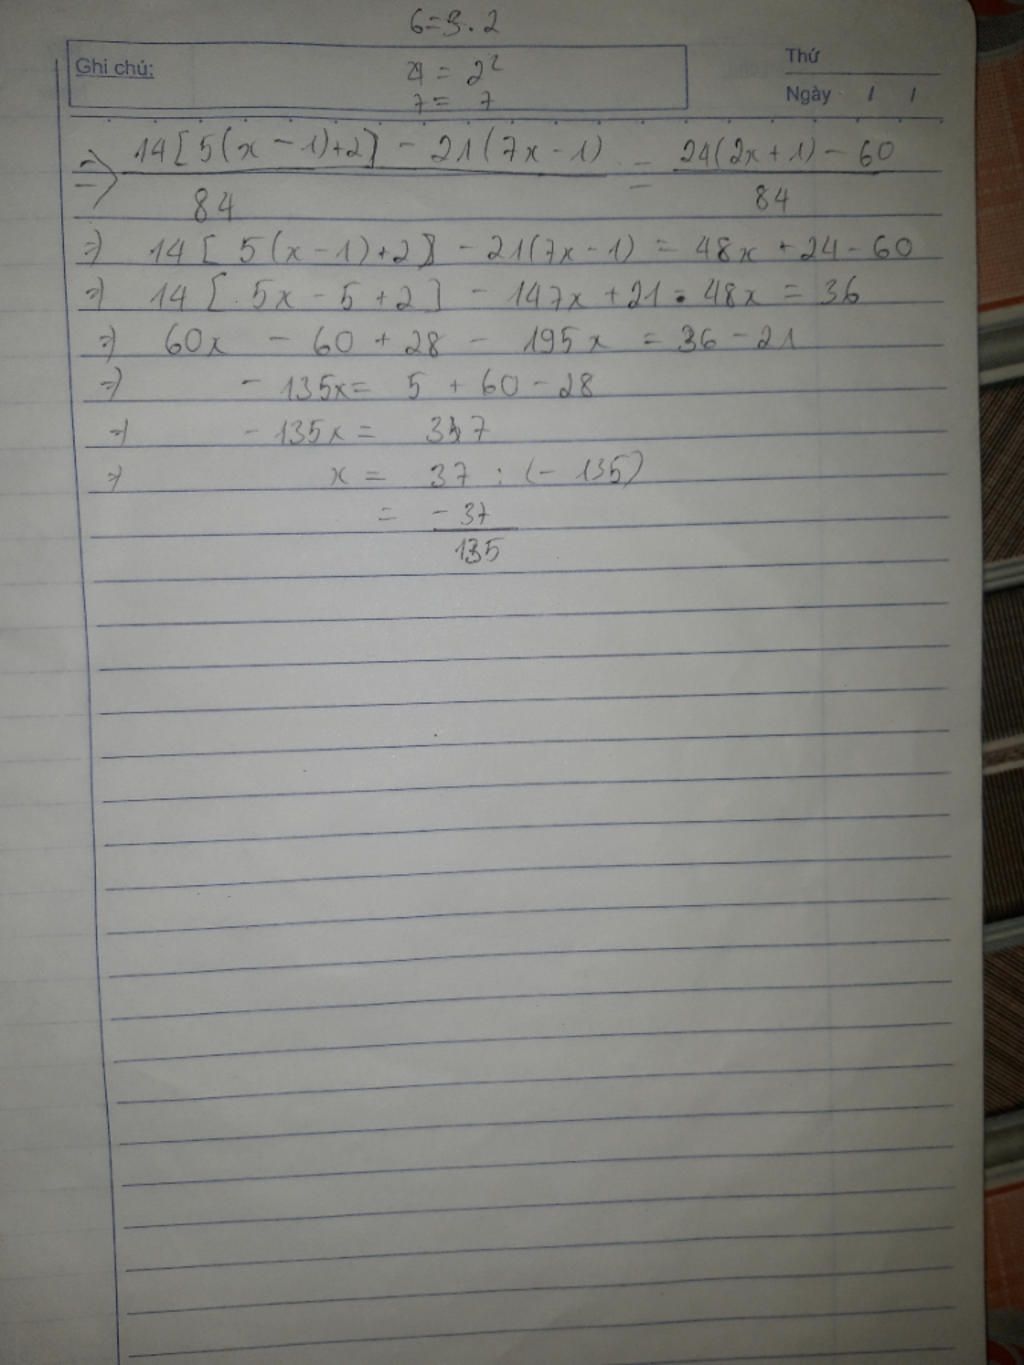 6 = 3 . 2
Ghi chú:
4 = 2²
7 = 7
Thứ
Ngày / /
=> 14[5(x - 1)+2] - 21(7x - 1) = 24(2x + 1) - 60
84 84
=> 14[5(x - 1)+2] - 21(7x - 1) = 48x + 24 - 60
=> 14[5x - 5 + 2] - 147x + 21 - 48x = 36
=> 60x - 60 + 28 - 195x = 36 - 21
=> - 135x = 5 + 60 - 28
=> - 135x = 37
=> x = 37 : (- 135)
= - 37
135